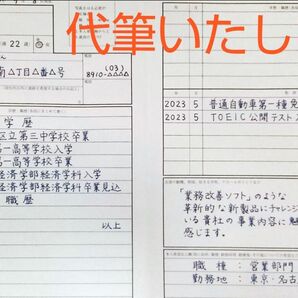 代筆いたし
通 22 歳)
南△丁目△番△号
(03)
8910-△△△△
学歴
区立第三中学校卒業
第一高等学校入学
第一高等学校卒業
経済学部経済学科入学
経済学部経済学科卒業見込
職歴
以上
2023 5 普通自動車第一種免
2023 5 TOEIC公開テスト2
「業務改善ソフト」のような
革新的な新製品にチャレンジ
いる貴社の事業内容に魅
感じます。
職種:営業部門
勤務地:東京・名古